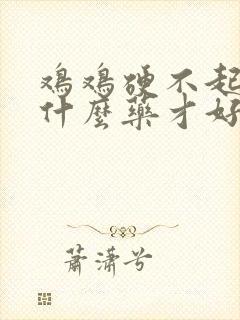 鸡鸡硬不起
什麼藥才好
蕭瀟兮